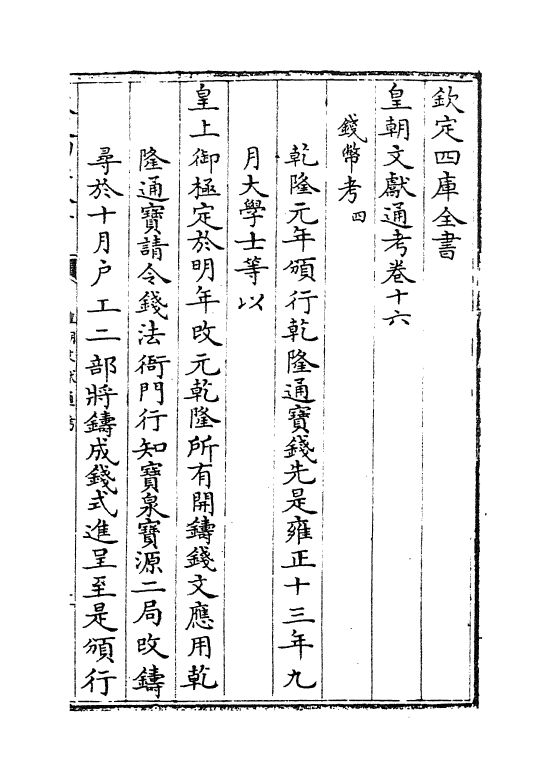 欽定四庫全書
皇朝文獻通考卷十六
錢幣考四
乾隆元年頒行乾隆通寶錢先是雍正十三年九
月大學士等以
皇上御極定於明年改元乾隆所有開鑄錢文應用乾
隆通寶請令錢法衙門行知寶泉寶源二局改鑄
尋於十月户工二部將鑄成錢式進呈至是頒行